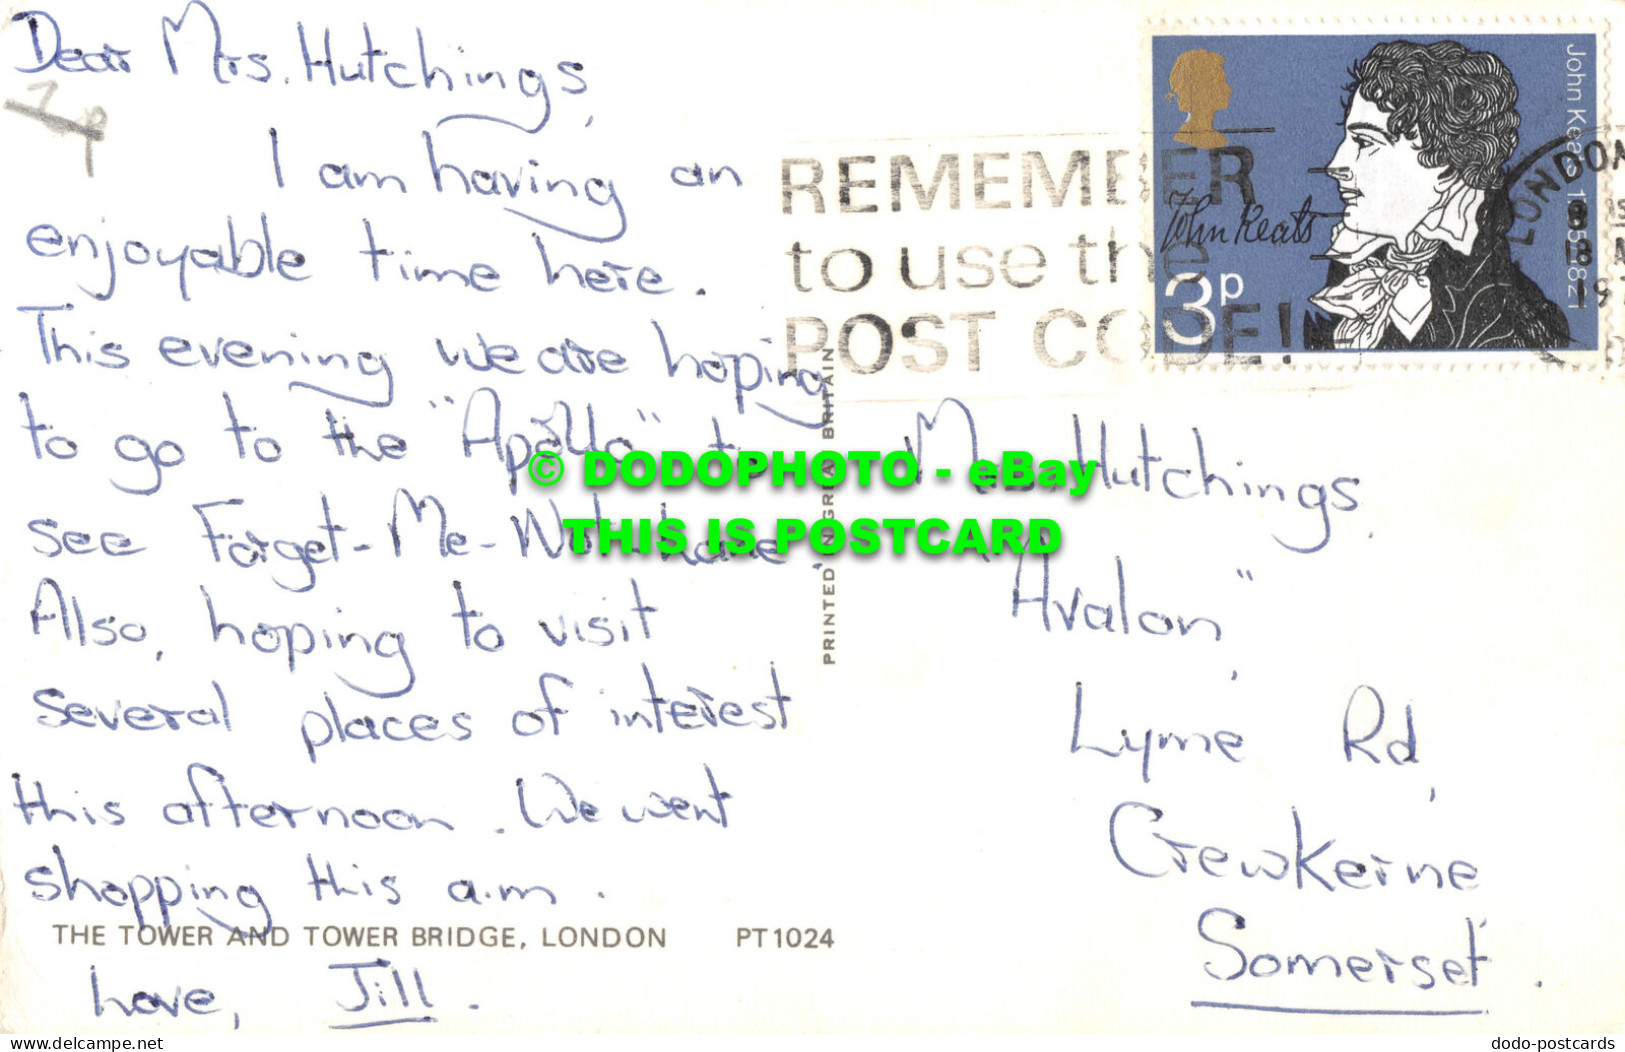 Dear Mrs. Hutchings,
I am having an
enjoyable time here.
This evening we are hoping
to go to the "Apollo" to
see Forget-Me-Not-Lane
Also, hoping to visit
several places of interest
this afternoon. We went
shopping this a.m.
Love, Jill.
THE TOWER AND TOWER BRIDGE, LONDON PT1024
PRINTED IN GREAT BRITAIN
REMEMBER
to use the
POST CODE!
John Keats 1795-1821
John Keats
3p
LONDON
Mrs. Hutchings.
"Avalon",
Lyme Rd,
Crewkerne
Somerset.
© DODOPHOTO - eBay
THIS IS POSTCARD
www.delcampe.net
dodo-postcards